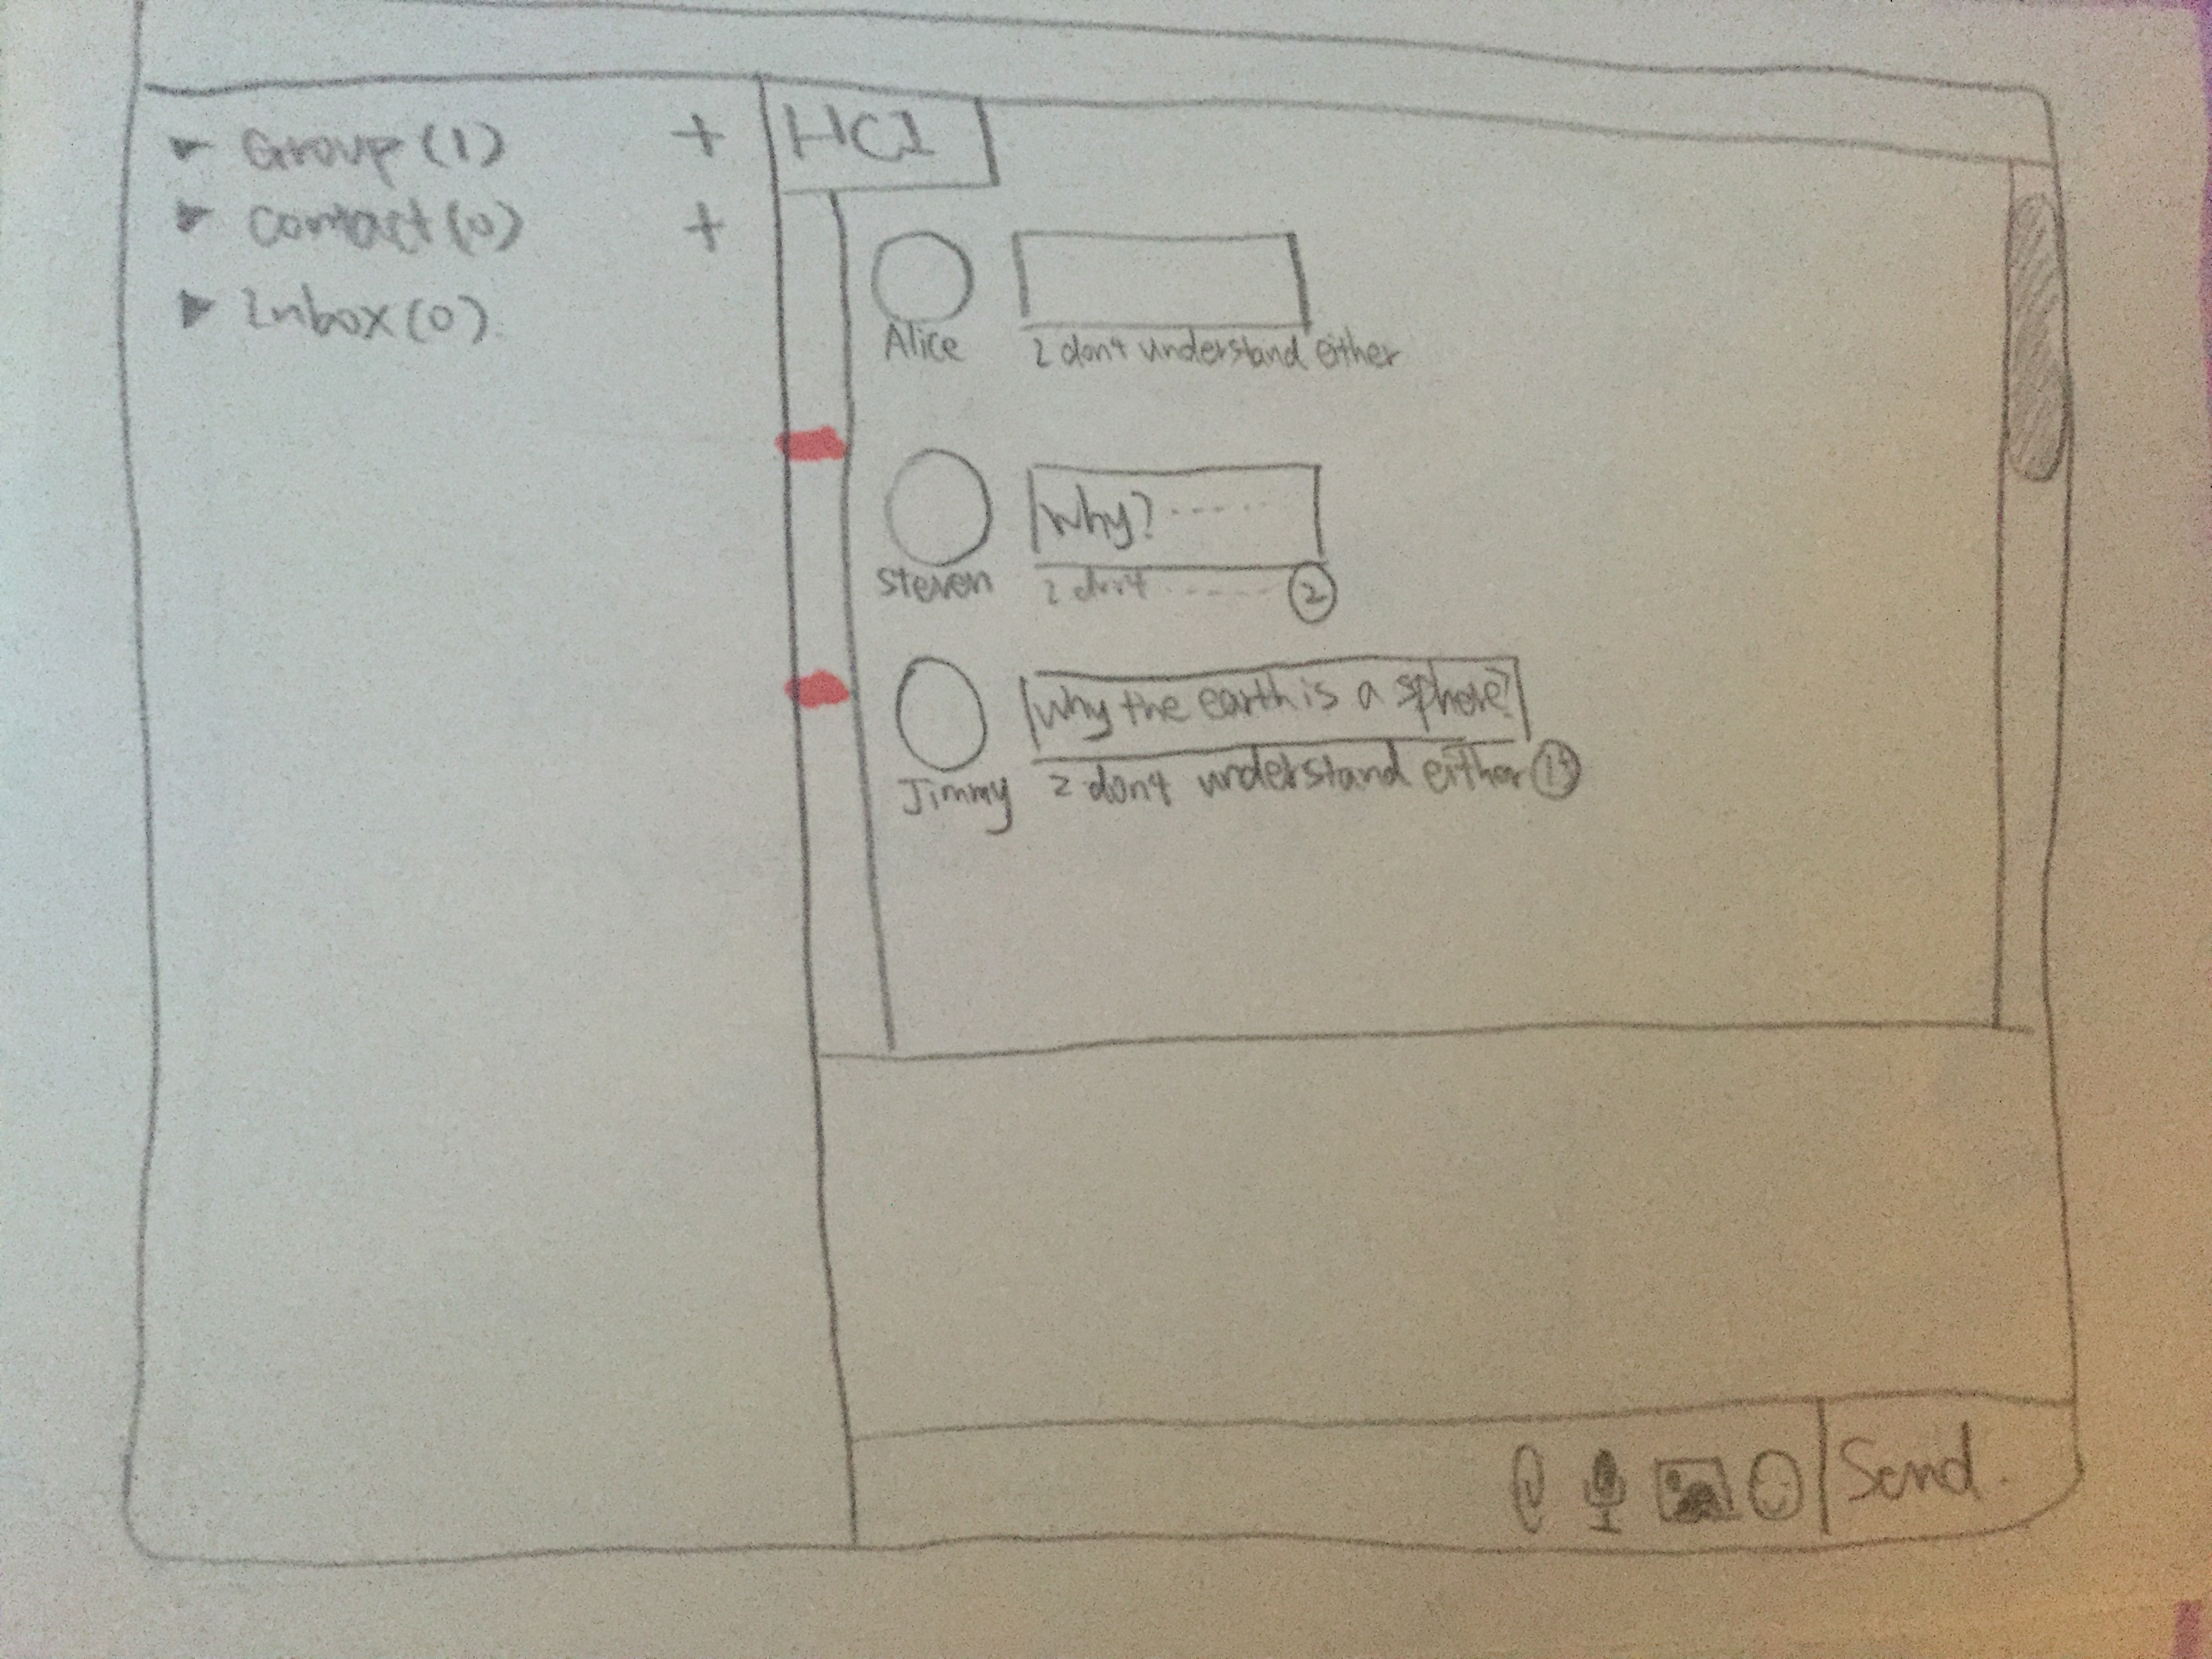 Group (1) +
Contact (0) +
Inbox (0)
HCI
Alice
I don't understand either
Why? -----
Steven
I don't ------ 2
Why the earth is a sphere?
Jimmy
I don't understand either
Send